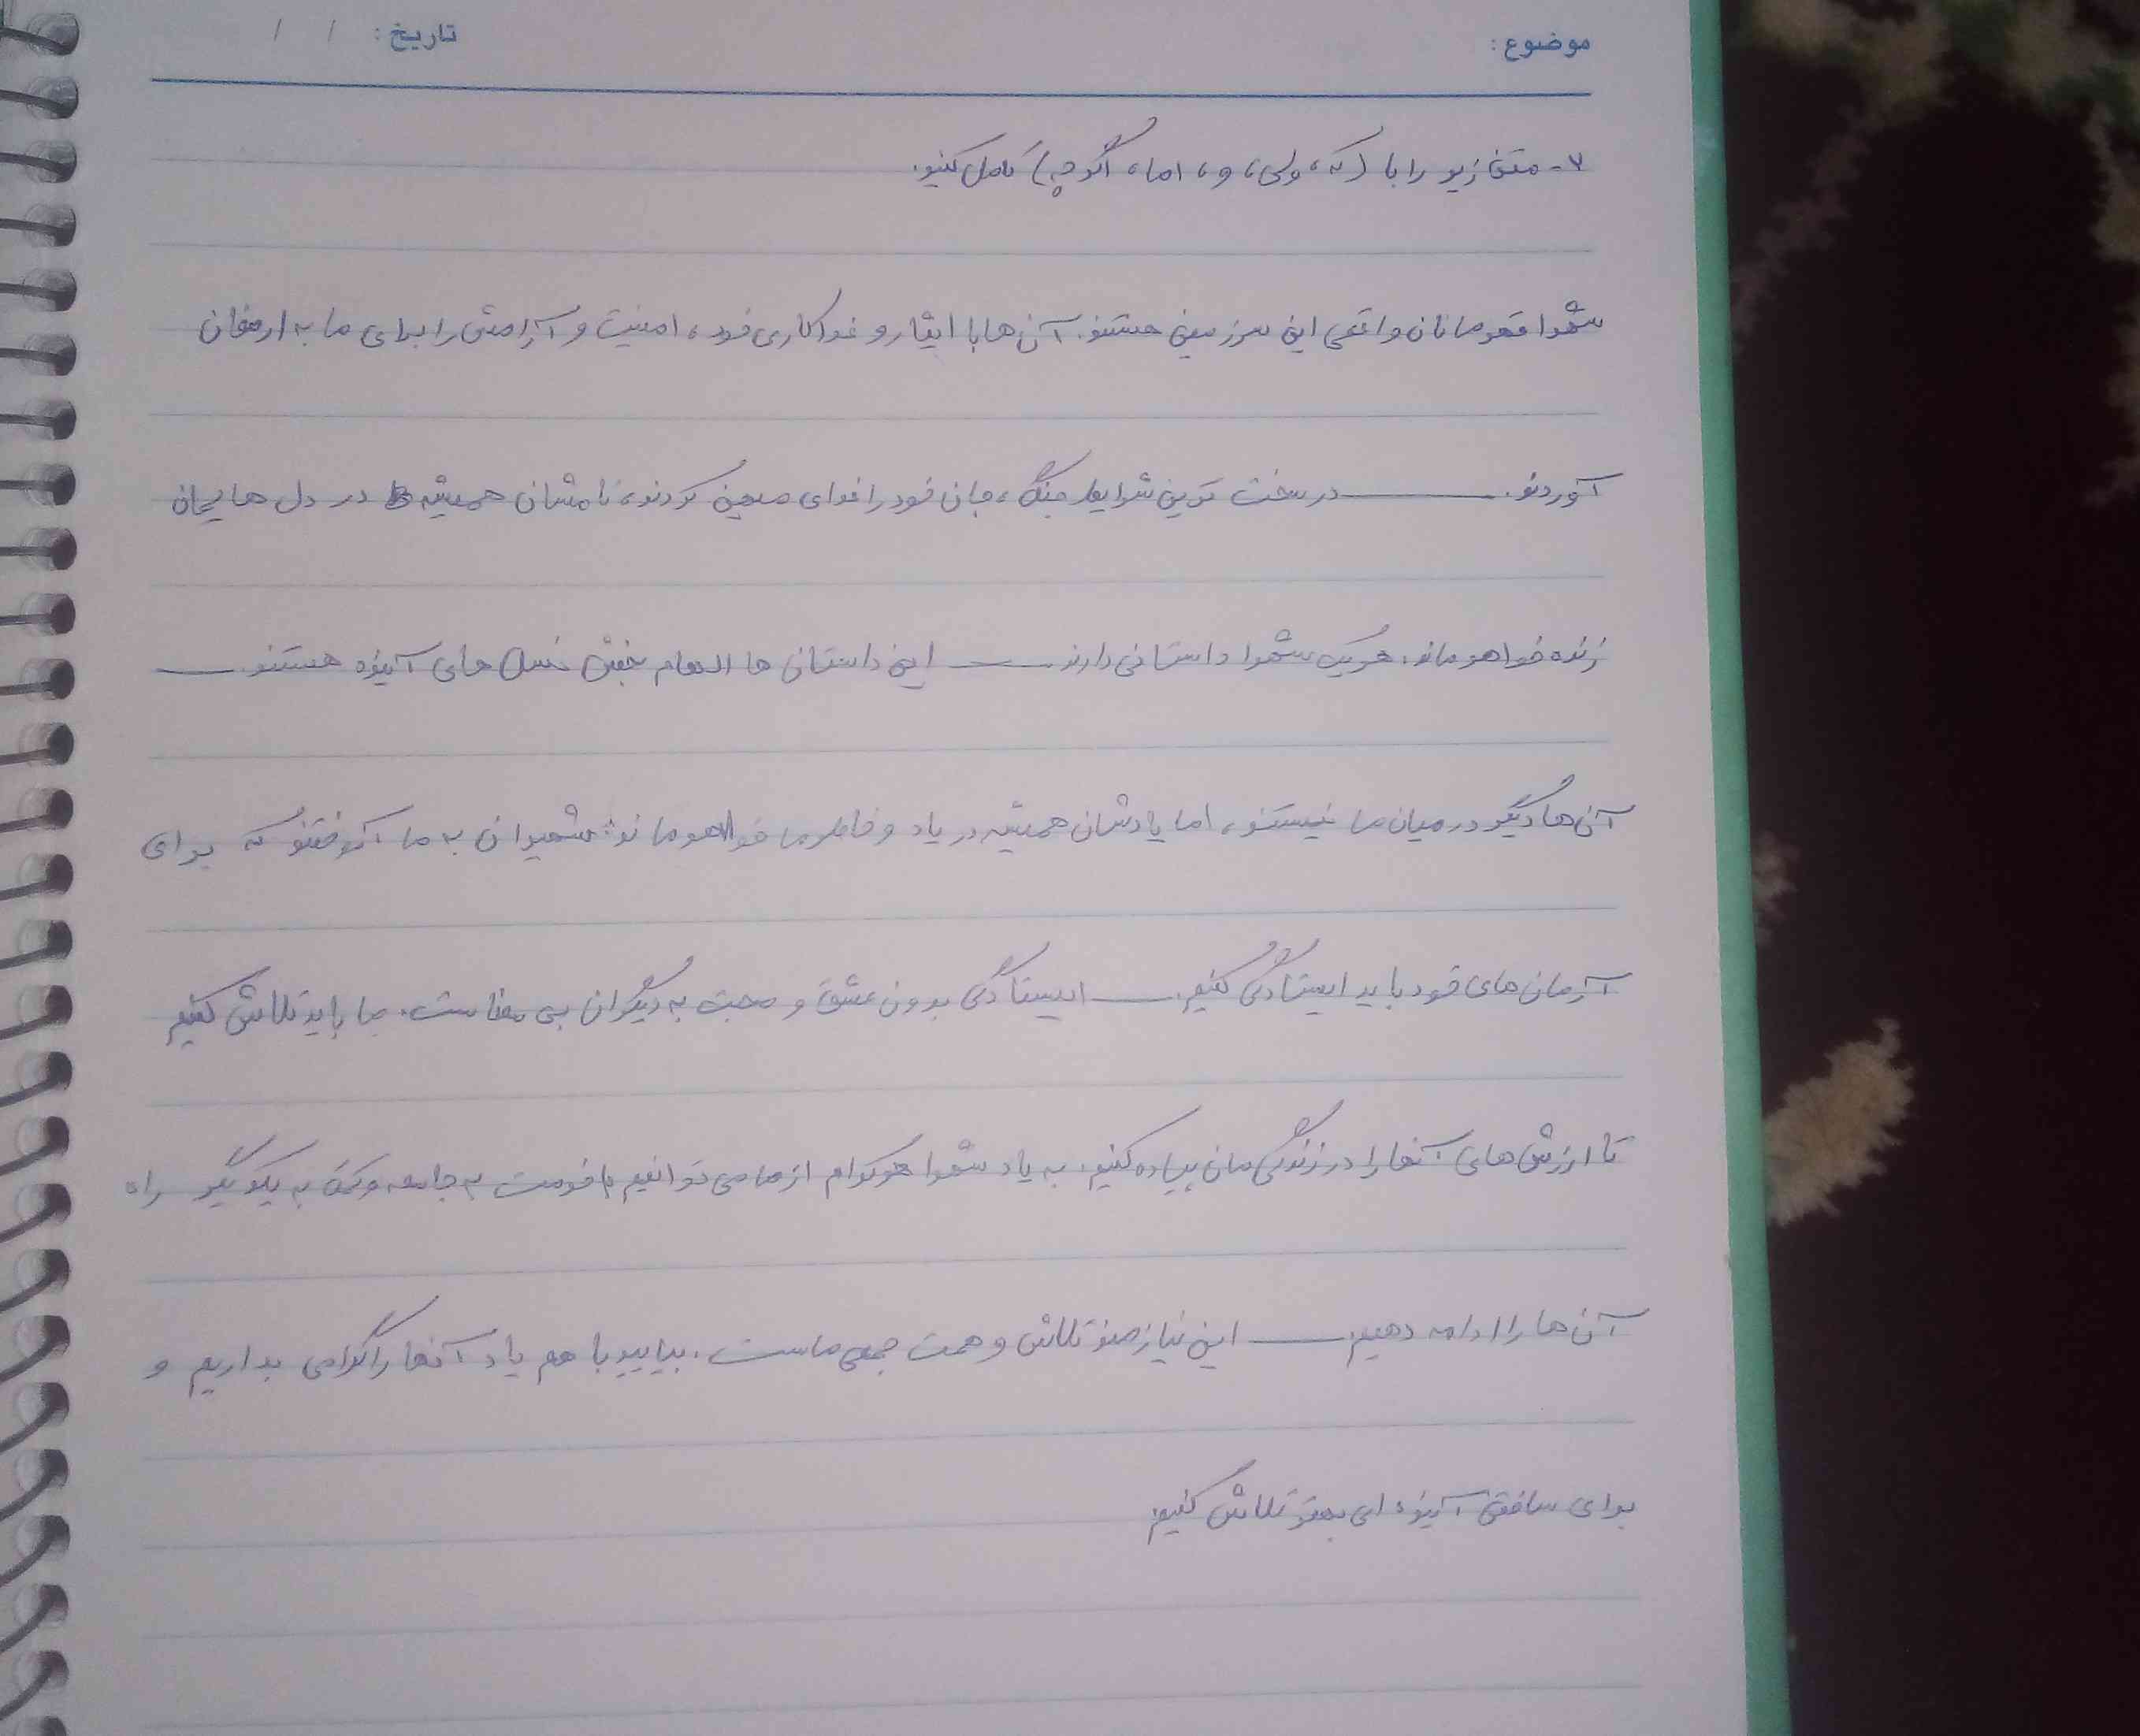 موضوع: تاریخ: / /
۲- متن زیر را با (که، ولی، و، اما، اگرچه) کامل کنید.
شهدا قهرمانان واقعی این سرزمین هستند. آن‌ها با ایثار و فداکاری خود، امنیت و آرامش را برای ما به ارمغان
آوردند. ــــــ در سخت ترین شرایط جنگ، جان خود را فدای میهن کردند، نامشان همیشه در دل هایمان
زنده خواهد ماند. هریک شهدا داستانی دارند ــــــ این داستان ها الهام بخش نسل های آینده هستند. ــــــ
آن‌ها دیگر در میان ما نیستند، اما یادشان همیشه در یاد و خاطر ما خواهد ماند. شهیدان به ما آموختند که برای
آرمان های خود باید ایستادگی کنیم. ــــــ ایستادگی بدون عشق و محبت به دیگران بی معناست. ما باید تلاش کنیم
تا ارزش های آنها را در زندگی مان پیاده کنیم. به یاد شهدا هرکدام از ما می توانیم با خدمت به جامعه و کمک به یکدیگر راه
آن ها را ادامه دهیم. ــــــ این نیازمند تلاش و همت جمعی ماست. بیایید با هم یاد آنها را گرامی بداریم و
برای ساختن آینده ای بهتر تلاش کنیم.